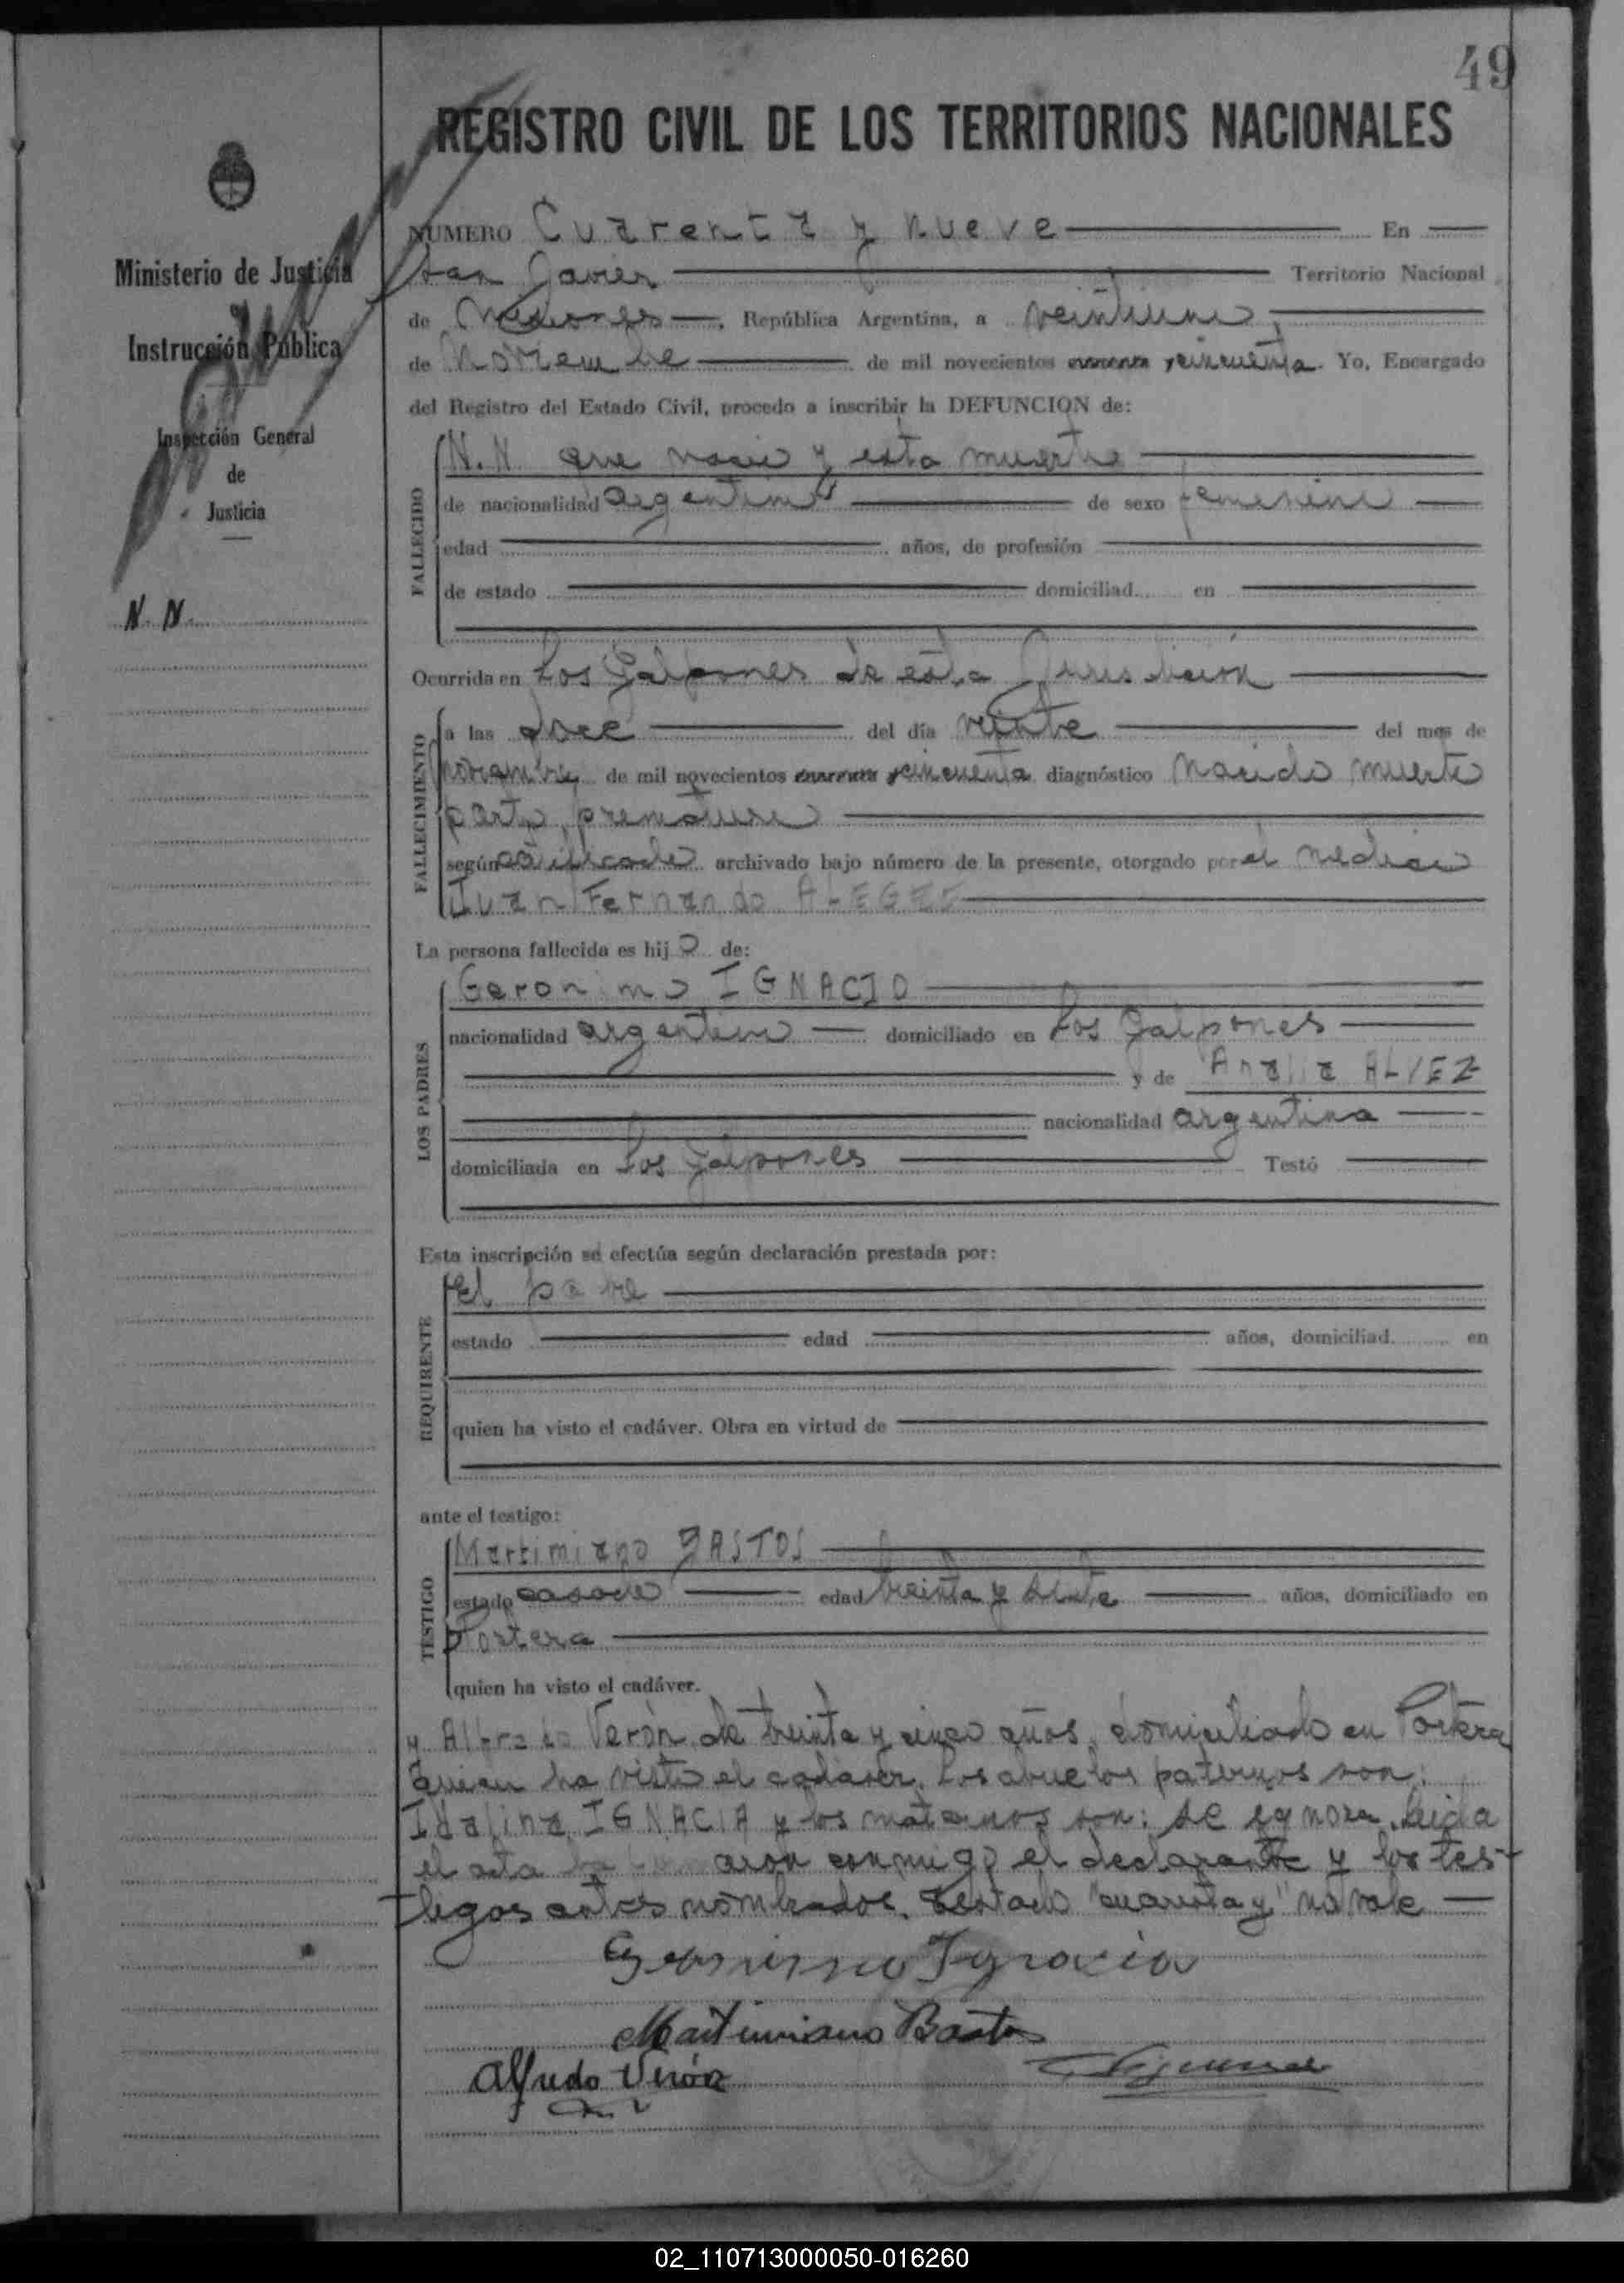 49
REGISTRO CIVIL DE LOS TERRITORIOS NACIONALES
Ministerio de Justicia
Instrucción Pública
Inspección General
de
Justicia
N. N.
NUMERO Cuarenta y nueve En
San Javier Territorio Nacional
de Misiones, República Argentina, a veintiuno
de Noviembre de mil novecientos cuarenta y cincuenta. Yo, Encargado
del Registro del Estado Civil, procedo a inscribir la DEFUNCION de:
FALLECIDO
N.N. que nacio y esta muerto
de nacionalidad argentina de sexo femenino
edad años, de profesión
de estado domiciliad en
Ocurrida en Los Galpones de esta
FALLECIMIENTO
a las doce del día veinte del mes de
noviembre de mil novecientos cuarenta y cincuenta diagnóstico Nacido muerto
parto prematuro
según certificado archivado bajo número de la presente, otorgado por el medico
Juan Fernando
La persona fallecida es hij de:
LOS PADRES
Geronimo IGNACIO
nacionalidad argentino domiciliado en Los Galpones
y de Analia ALVEZ
nacionalidad argentina
domiciliada en Los Galpones Testó
Esta inscripción se efectúa según declaración prestada por:
REQUIRENTE
el padre
estado edad años, domiciliad en
quien ha visto el cadáver. Obra en virtud de
ante el testigo:
TESTIGO
Martimiano BASTOS
estado casado edad treinta y siete años, domiciliado en
Portera
quien ha visto el cadáver.
y Alfredo Verón de treinta y cinco años, domiciliado en Portera
quien ha visto el cadaver. Los abuelos paternos son:
Idalina IGNACIA y los maternos son: se ignora. Leida
el acta la conmigo el declarante y los tes-
tigos antes nombrados. Testado "cuarenta y" no vale
Geronimo Ignacio
Martimiano Bastos
Alfredo Verón
02_110713000050-016260